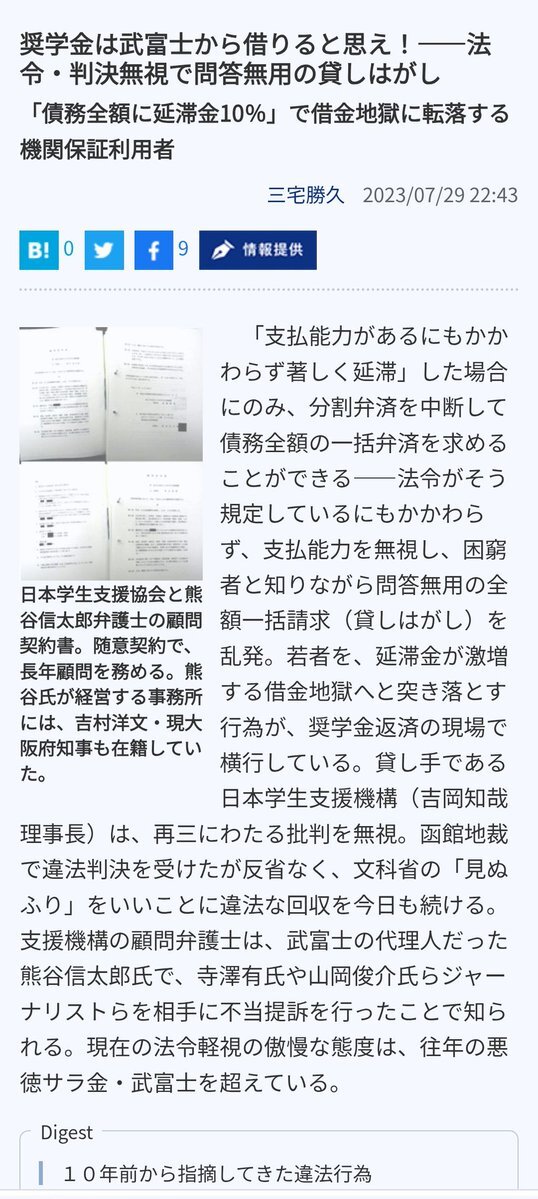 奨学金は武富士から借りると思え！――法
令・判決無視で問答無用の貸しはがし
「債務全額に延滞金10％」で借金地獄に転落する
機関保証利用者
三宅勝久　2023/07/29 22:43
B! 0 9 情報提供
「支払能力があるにもかか
わらず著しく延滞」した場合
にのみ、分割弁済を中断して
債務全額の一括弁済を求める
ことができる――法令がそう
規定しているにもかかわら
ず、支払能力を無視し、困窮
者と知りながら問答無用の全
額一括請求（貸しはがし）を
乱発。若者を、延滞金が激増
する借金地獄へと突き落とす
行為が、奨学金返済の現場で
横行している。貸し手である
日本学生支援機構（吉岡知哉
理事長）は、再三にわたる批判を無視。函館地裁
で違法判決を受けたが反省なく、文科省の「見ぬ
ふり」をいいことに違法な回収を今日も続ける。
支援機構の顧問弁護士は、武富士の代理人だった
熊谷信太郎氏で、寺澤有氏や山岡俊介氏らジャー
ナリストらを相手に不当提訴を行ったことで知ら
れる。現在の法令軽視の傲慢な態度は、往年の悪
徳サラ金・武富士を超えている。
日本学生支援協会と熊
谷信太郎弁護士の顧問
契約書。随意契約で、
長年顧問を務める。熊
谷氏が経営する事務所
には、吉村洋文・現大
阪府知事も在籍してい
た。
Digest
１０年前から指摘してきた違法行為